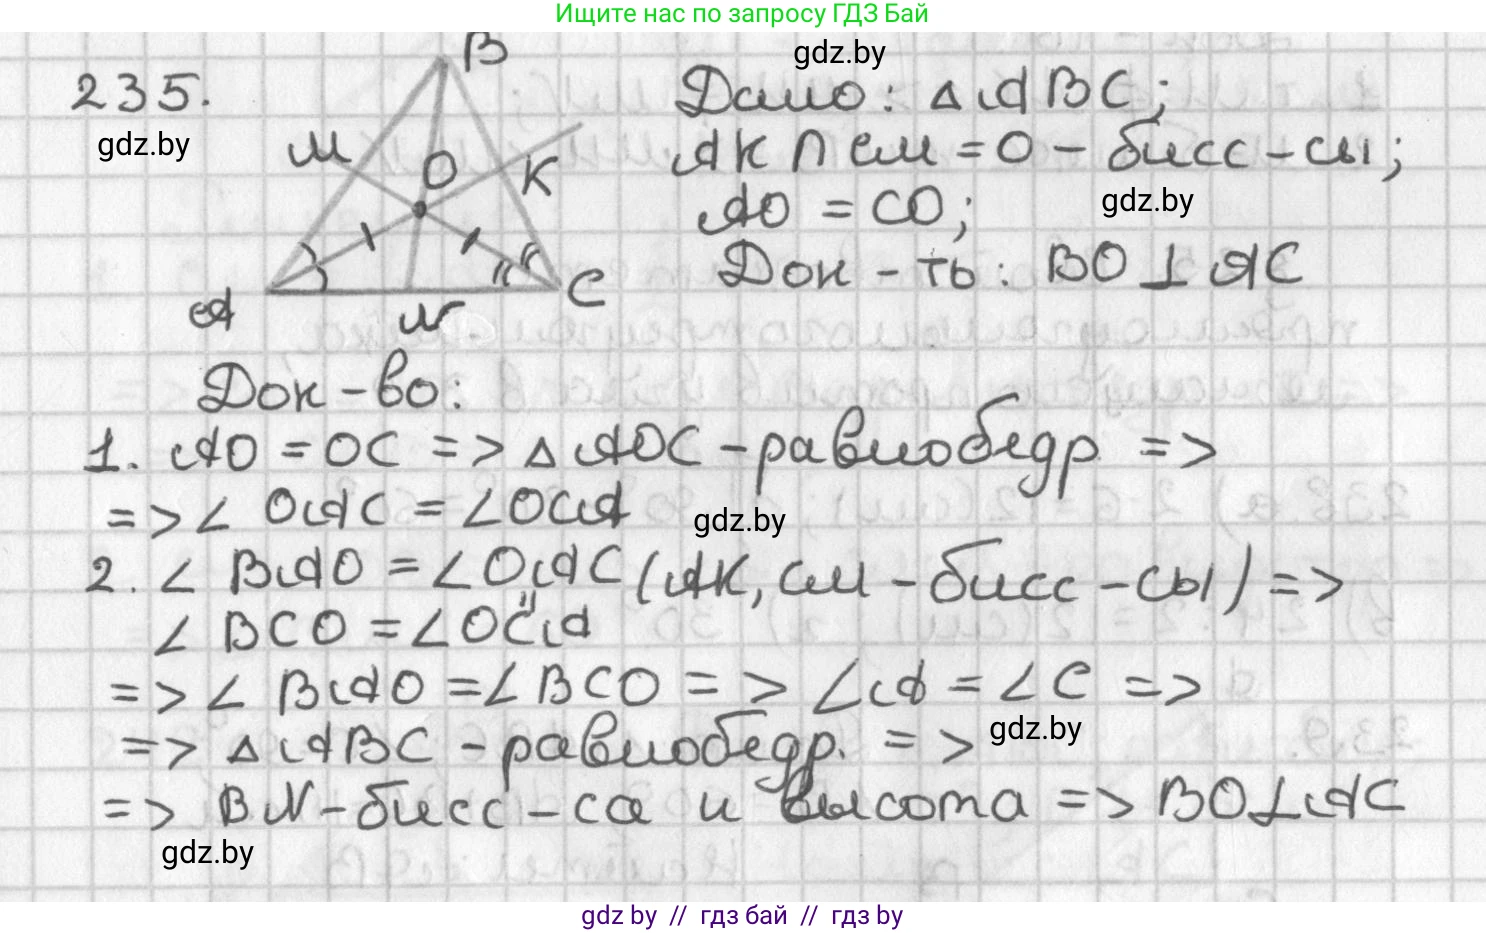 Ищите нас по запросу ГДЗ Бай
235.
gdz.by
B
M
O
K
A
N
C
gdz.by
Дано: △ABC;
AK ∩ CM = O - бисс-сы;
gdz.by
AO = CO;
Док-ть: BO ⊥ AC
Док-во:
1. AO = OC => △AOC - равнобедр. =>
=> ∠OAC = ∠OCA
gdz.by
2. ∠BAO = ∠OAC (AK, CM - бисс-сы) =>
∠BCO = ∠OCA
=> ∠BAO = ∠BCO => ∠A = ∠C =>
=> △ABC - равнобедр. =>
gdz.by
=> BN - бисс-са и высота => BO ⊥ AC
gdz.by
gdz by // гдз бай // гдз by